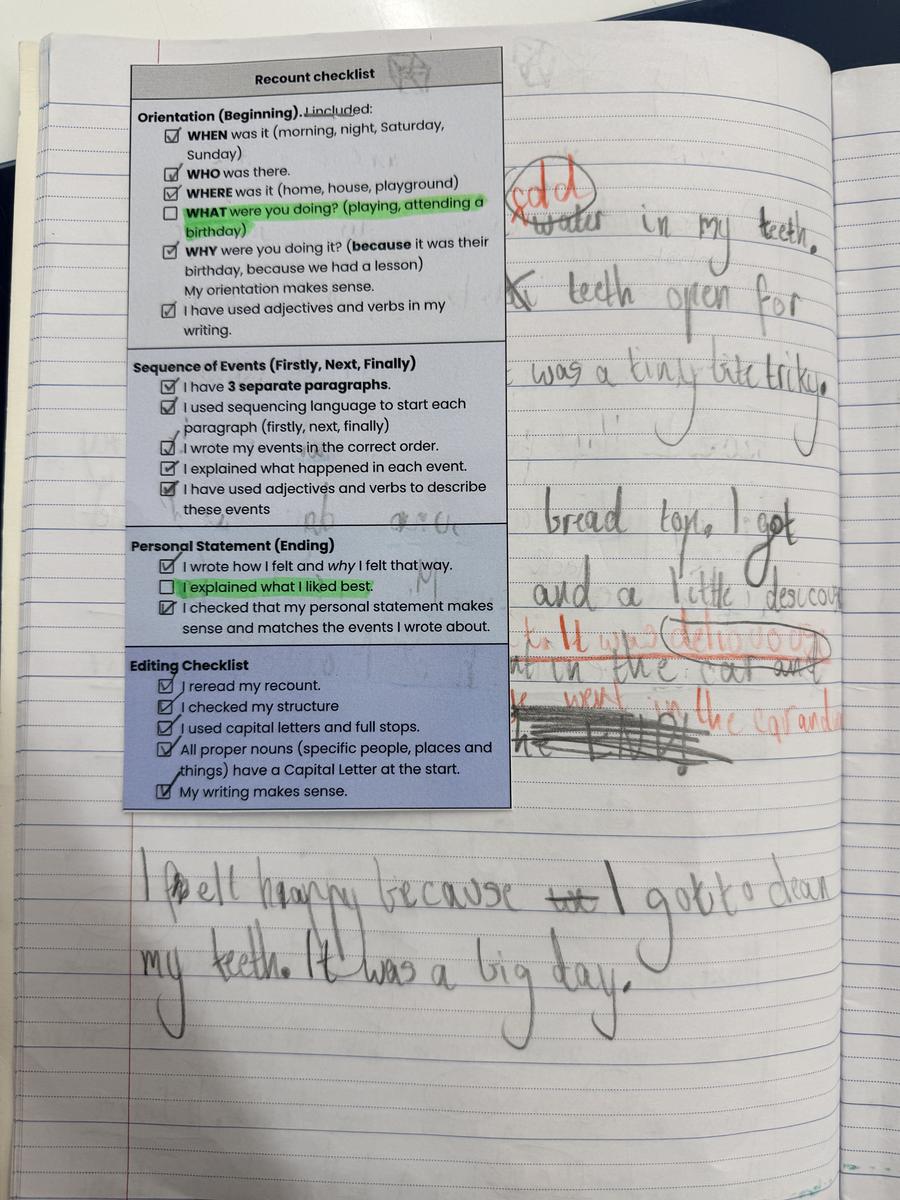 Recount checklist
Orientation (Beginning). I included:
WHEN was it (morning, night, Saturday,
Sunday)
WHO was there.
WHERE was it (home, house, playground)
WHAT were you doing? (playing, attending a
birthday)
WHY were you doing it? (because it was their
birthday, because we had a lesson)
My orientation makes sense.
I have used adjectives and verbs in my
writing.
Sequence of Events (Firstly, Next, Finally)
I have 3 separate paragraphs.
I used sequencing language to start each
paragraph (firstly, next, finally)
I wrote my events in the correct order.
I explained what happened in each event.
I have used adjectives and verbs to describe
these events
Personal Statement (Ending)
I wrote how I felt and why I felt that way.
I explained what I liked best.
I checked that my personal statement makes
sense and matches the events I wrote about.
Editing Checklist
I reread my recount.
I checked my structure
I used capital letters and full stops.
All proper nouns (specific people, places and
things) have a Capital Letter at the start.
My writing makes sense.
cold
water in my teeth.
teeth open for
was a tiny bite triky.
bread top. I got
and a little descou
It was
in the car and
went in the car and
END
I felt happy because I got to clean
my teeth. It was a big day.